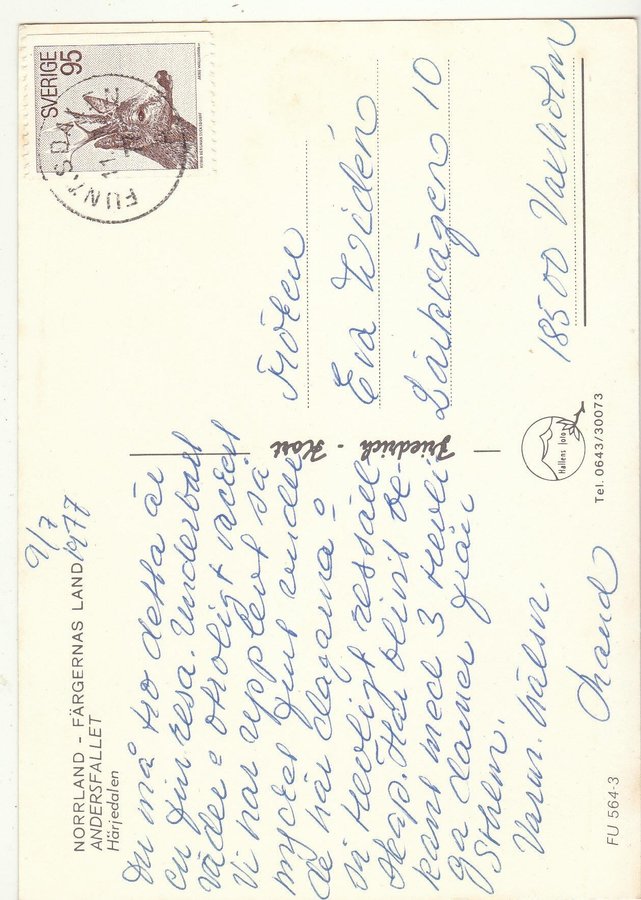 NORRLAND - FÄRGERNAS LAND
ANDERSFALLET
Härjedalen
9/7
1977
Du må tro detta är
en fin resa. Underbart
väder o otroligt vackert
Vi har upplevt så
mycket fint under
de här dagarna o
så trevligt ressäll-
skap. Har blivit be-
kant med 3 trevli-
ga damer från
Sthlm.
Varm. hälsn.
Maud
FU 564-3
Friedrich - Kort
Hallens foto
Tel. 0643/30073
SVERIGE
95
FUNÄSDA
Fröken
Eva Widén
Lärkvägen 10
185 00 Vaxholm